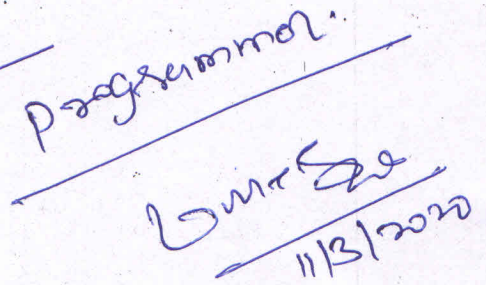 Programmer.
11/3/2020